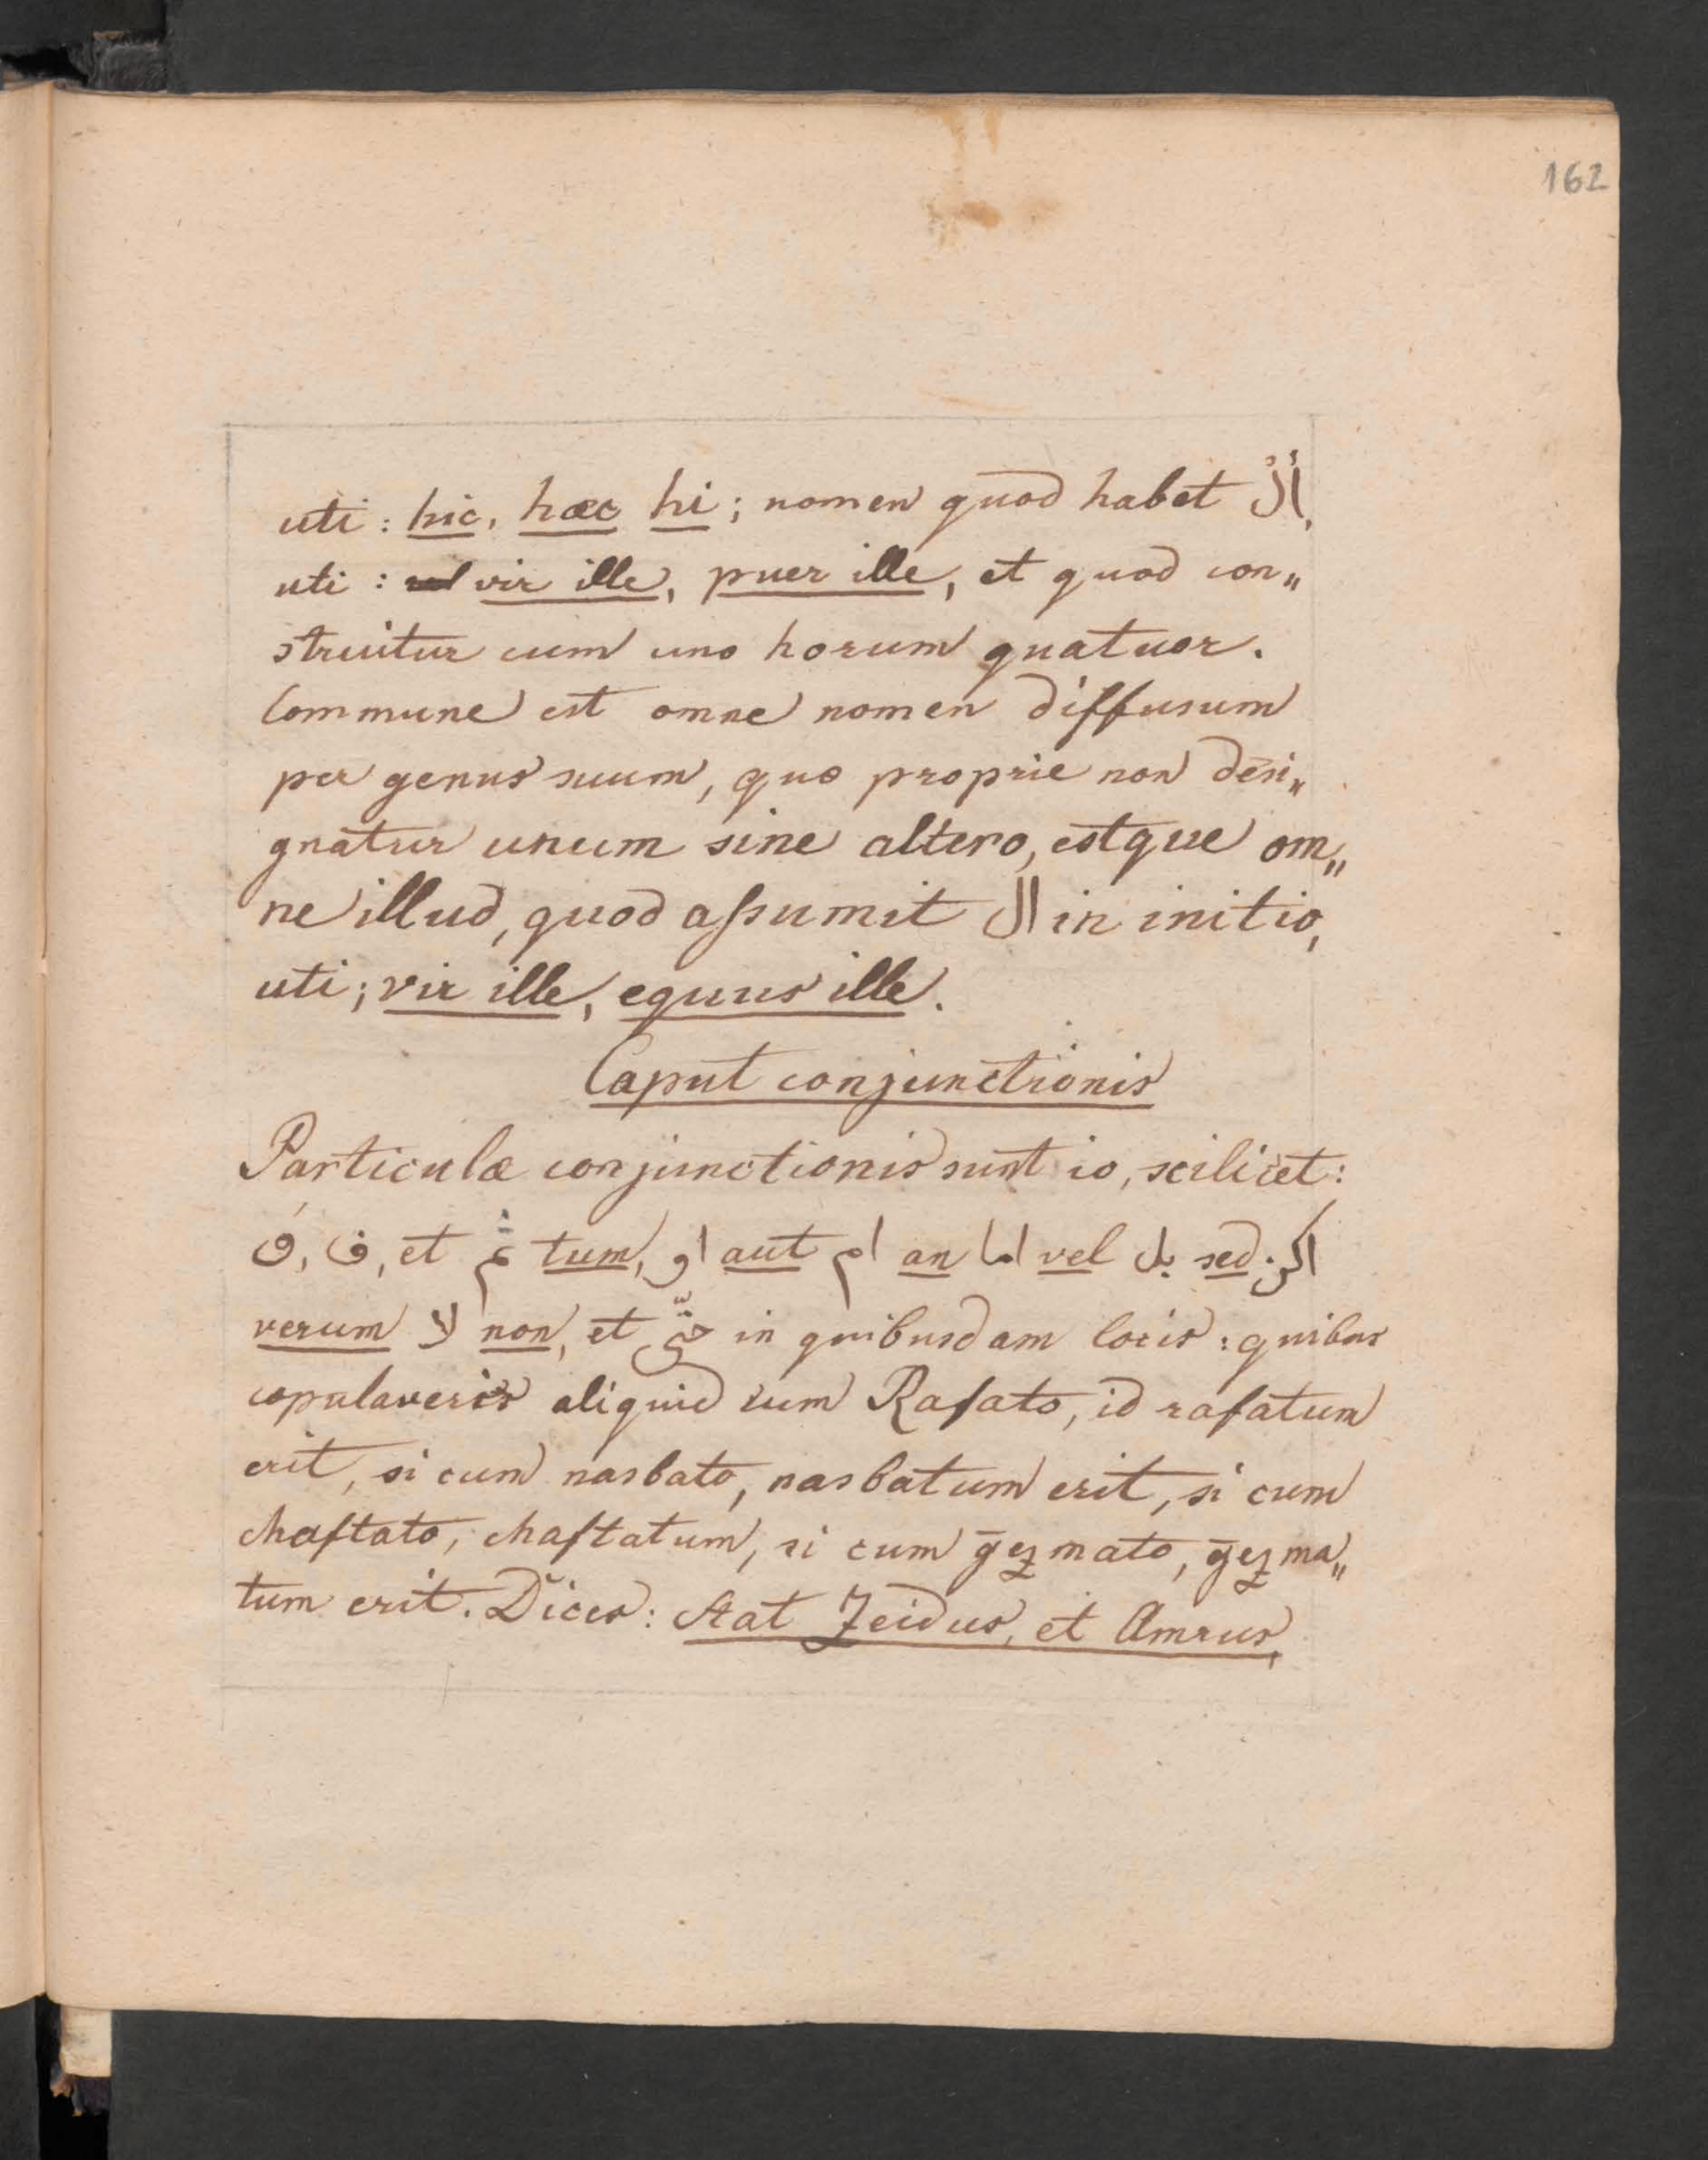 162
uti: hic, hæc hi; nomen quod habet اَلْ,
uti: vir ille, puer ille, et quod con„
struitur cum uno horum quatuor.
Commune est omne nomen diffusum
per genus suum, quo proprie non desi„
gnatur unum sine altero, estque om„
ne illud, quod assumit ال in initio,
uti; vir ille, equus ille.
Caput conjunctionis
Particulæ conjunctionis sunt 10, scilicet:
وَ, ف, et ثُمّ tum, او aut ام an اما vel بل sed لكن
verum لا non, et حتّى in quibusdam locis: quibus
copulaveris aliquid cum Rafato, id rafatum
erit, si cum nasbato, nasbatum erit, si cum
chaftato, chaftatum, si cum ḡezmato, ḡezma„
tum erit. Dices: Stat Zeidus, et Amrus,